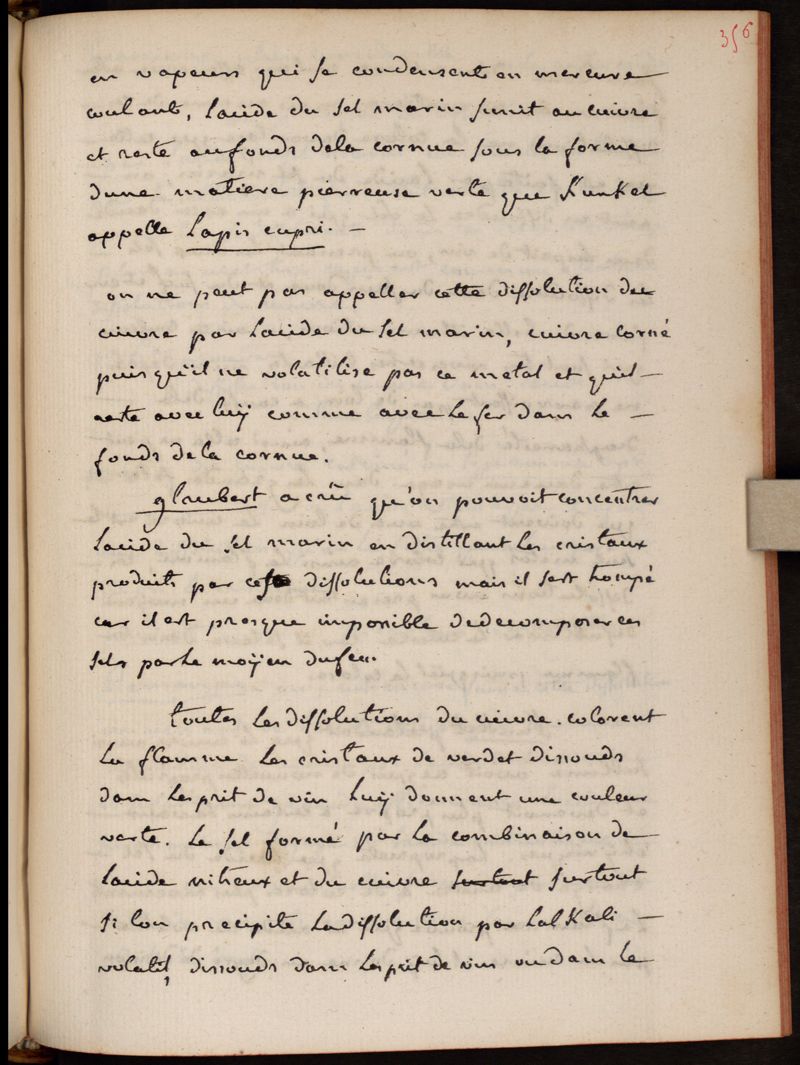 356
en vapeurs qui se condensent en mercure
coulant, lacide du sel marin sunit au cuivre
et reste aufonds dela cornue sous la forme
dune matiere pierreuse verte que Kunkel
appelle Lapis cupri. —
on ne peut pas appeller cette dissolution du
cuivre par lacide du sel marin, cuivre corné
puis qu'il ne volatilise pas ce metal et quil —
reste avec luÿ comme avec le fer dans le —
fonds de la cornue.
glaubert a crû qu'on pouvoit concentrer
lacide du sel marin en distillant les cristaux
produits par ces dissolutions mais il sest trompé
car il est presque impossible dedecomposer ces
sels par le moÿen dufeu.
toutes les dissolutions du cuivre. colorent
la flamme les cristaux de verdet dissouds
dans lesprit de vin luÿ donnent une couleur
verte. le sel formé par la combinaison de
lacide nitreux et du cuivre surtout surtout
si lon precipite la dissolution par lalKali —
volatil, dissouds dans lesprit de vin ou dans le